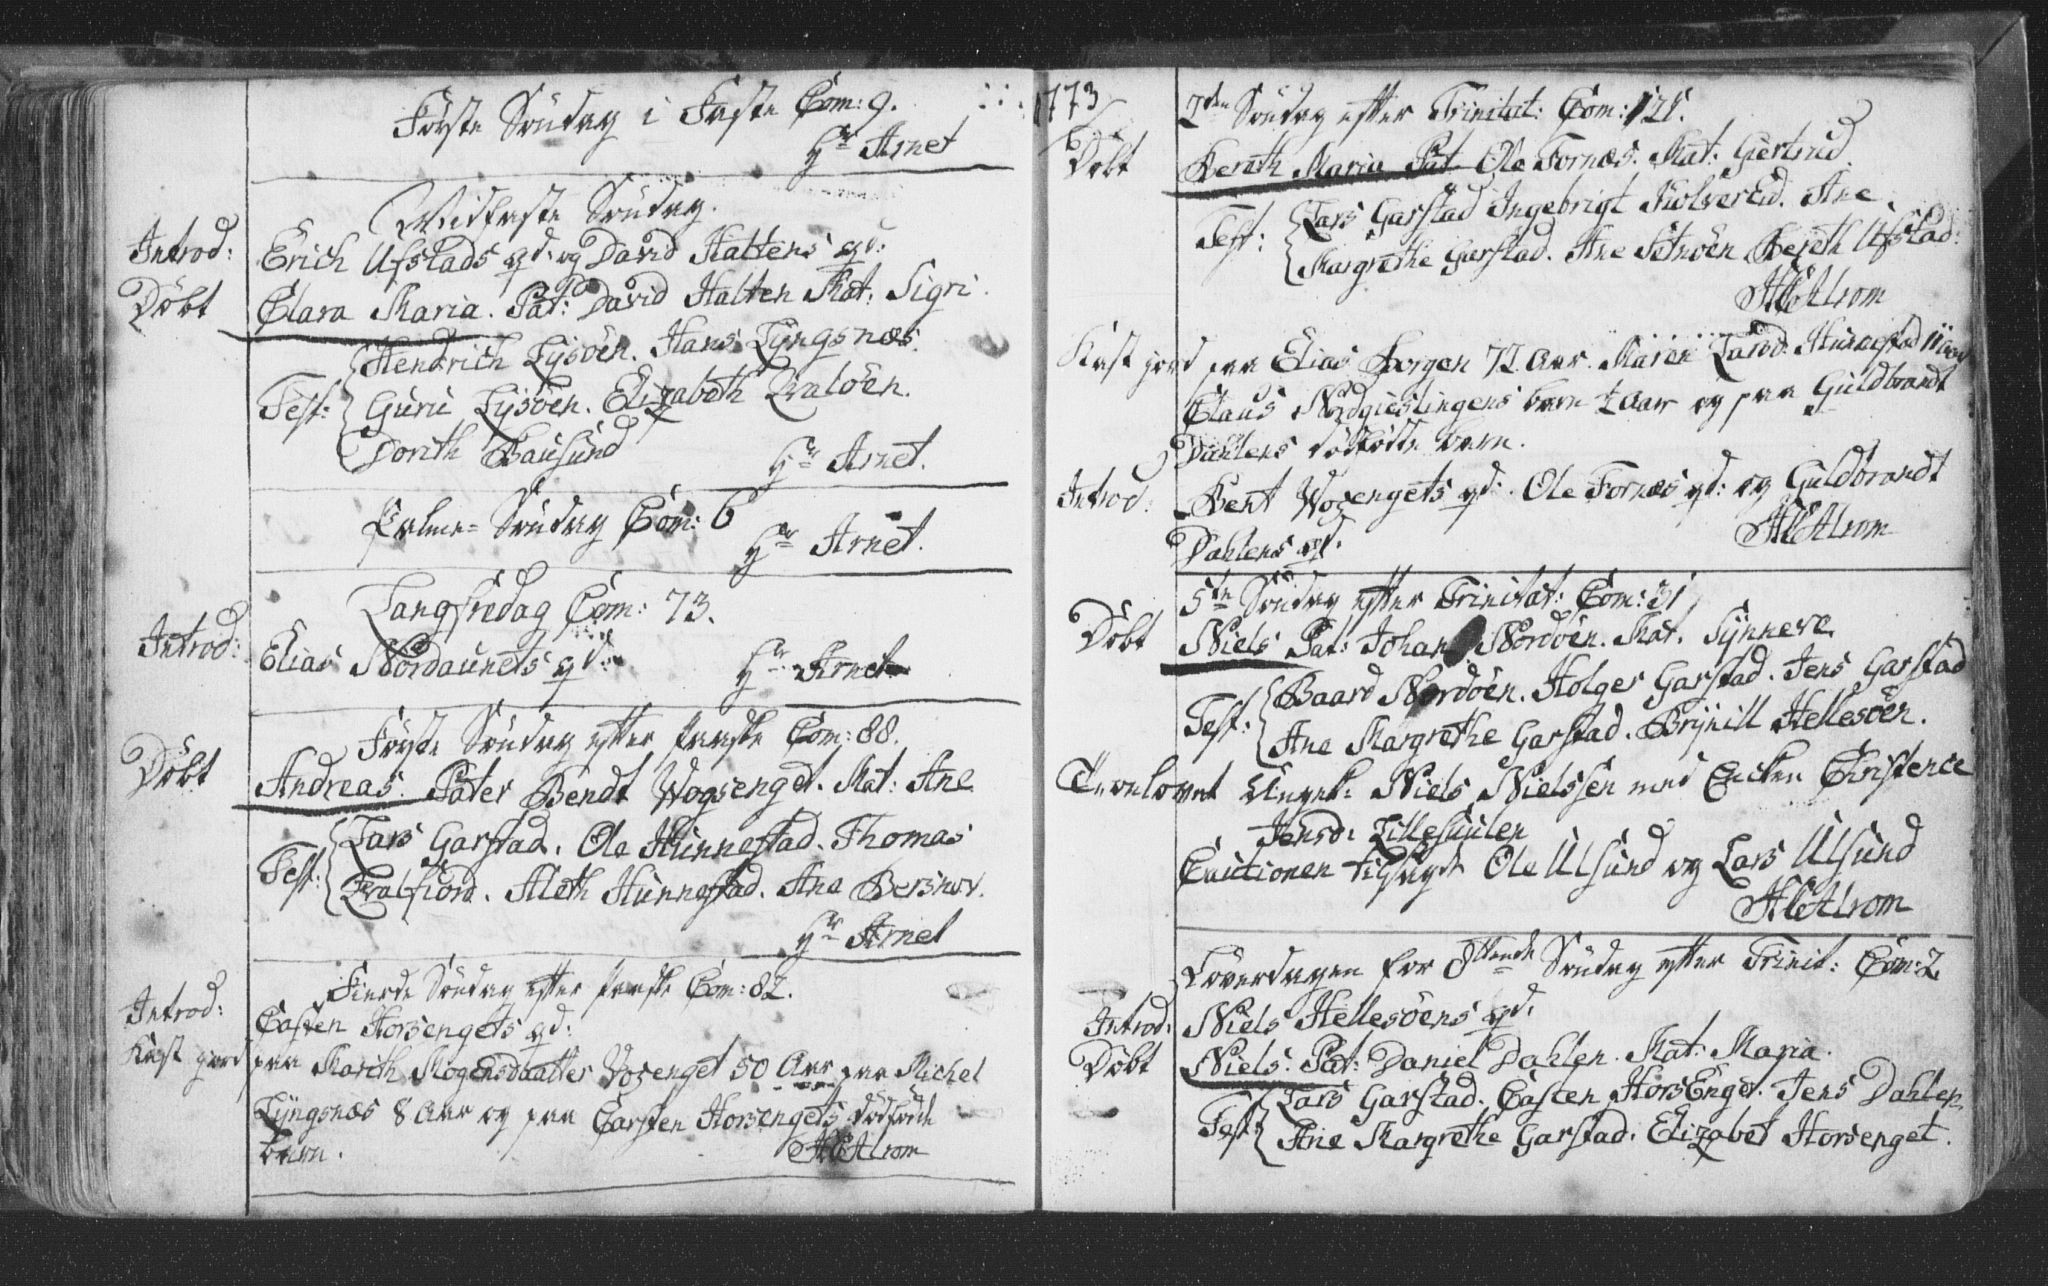 Første Søndag i Faste Com: 9.
Hr Arnet
Midfaste Søndag.
Introd: Erich Ufstads qd: og David Haltens qd:
Døbt Clara Maria. Pat: David Halten Mat: Sigri.
Hendrich Lysøen. Hans Lyngsnæs.
Test: Guru Lysøen. Elizabeth Qvaløen.
Dorith Bausund
Hr Arnet.
Palme= Søndag Com: 6
Hr Arnet.
Langfredag Com: 73.
Introd: Elias Nordaunets qd:
Hr Arnet
Første Søndag efter Paaske Com: 88.
Døbt Andreas. Pater Bendt Wogsenget. Mat: Ane
Lars Garstad. Ole Hunnestad. Thomas
Test: Qvalfiord. Aleth Hunnestad. Ane Bersnev.
Hr Arnet
Fierde Søndag efter Paaske Com: 82.
Introd: Casten Horsengets qd:
Kast giord paa Marith Mogensdaatter Vogenget 50 Aar paa Michel
Lyngsnæs 8 Aar og paa Carsten Horsengets dødfødde
barn.
1773
2den Søndag efter Trinitat: Com: 121.
Døbt Bereth Maria Pat Ole Fornæs. Mat: Giertrud.
Test: Lars Garstad Ingebrigt Kolvereid. Ane
Margrethe Garstad. Ane Sætnøen Bereth Ufstad:
Kast giord paa Elias Borgen 72 Aar. Maren Larsd. Hunnestad 11 Aar
Claus Nordgieslingens barn 1 Aar og paa Guldbrandt
Dahlens dødfødde barn.
Introd: Bent Wogengets qd: Ole Fornæs qd: og Guldbrandt
Dahlens qd.
5te Søndag efter Trinitat: Com: 31
Døbt Niels Pat: Johan Nordøen. Mat. Synneve
Baard Nordøen. Holger Garstad. Jens Garstad
Test: Ane Margrethe Garstad. Brynill Hellesøen.
Trolovet Ungk: Niels Nielssen med Encken Christence
Jensd: Lillesuulen
Cautionen tilsagde Ole Ulsund og Lars Ulsund
Løverdagen for 8tende Søndag efter Trinit: Com: 2
Introd: Niels Hellesøens qd.
Døbt Niels. Pat: Daniel Dahlen. Mat: Maria.
Lars Garstad. Casten HorsEnget. Jens Dahlen
Test: Ane Margrethe Garstad. Elizabet Horsenget.